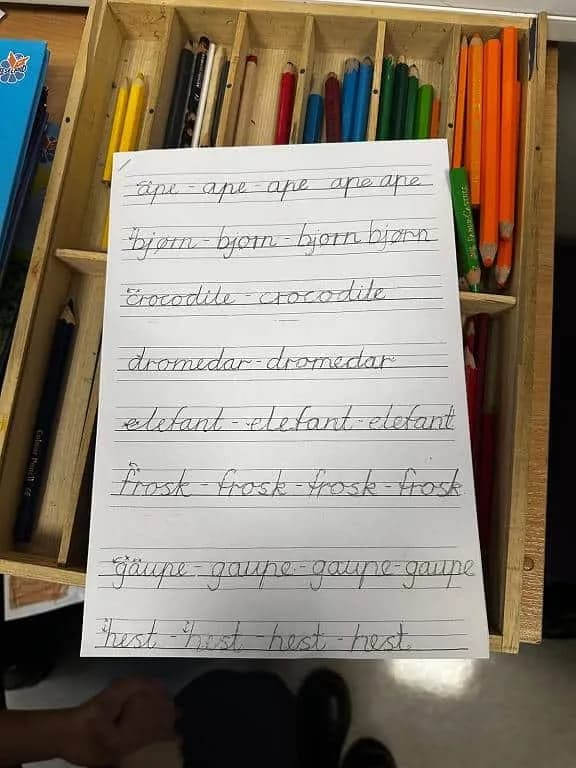 ape - ape - ape ape ape
bjørn - bjørn - bjørn bjørn
crocodile - crocodile
dromedar - dromedar
elefant - elefant - elefant
frosk - frosk - frosk - frosk
gaupe - gaupe - gaupe - gaupe
hest - hest - hest - hest
Colour Pencil